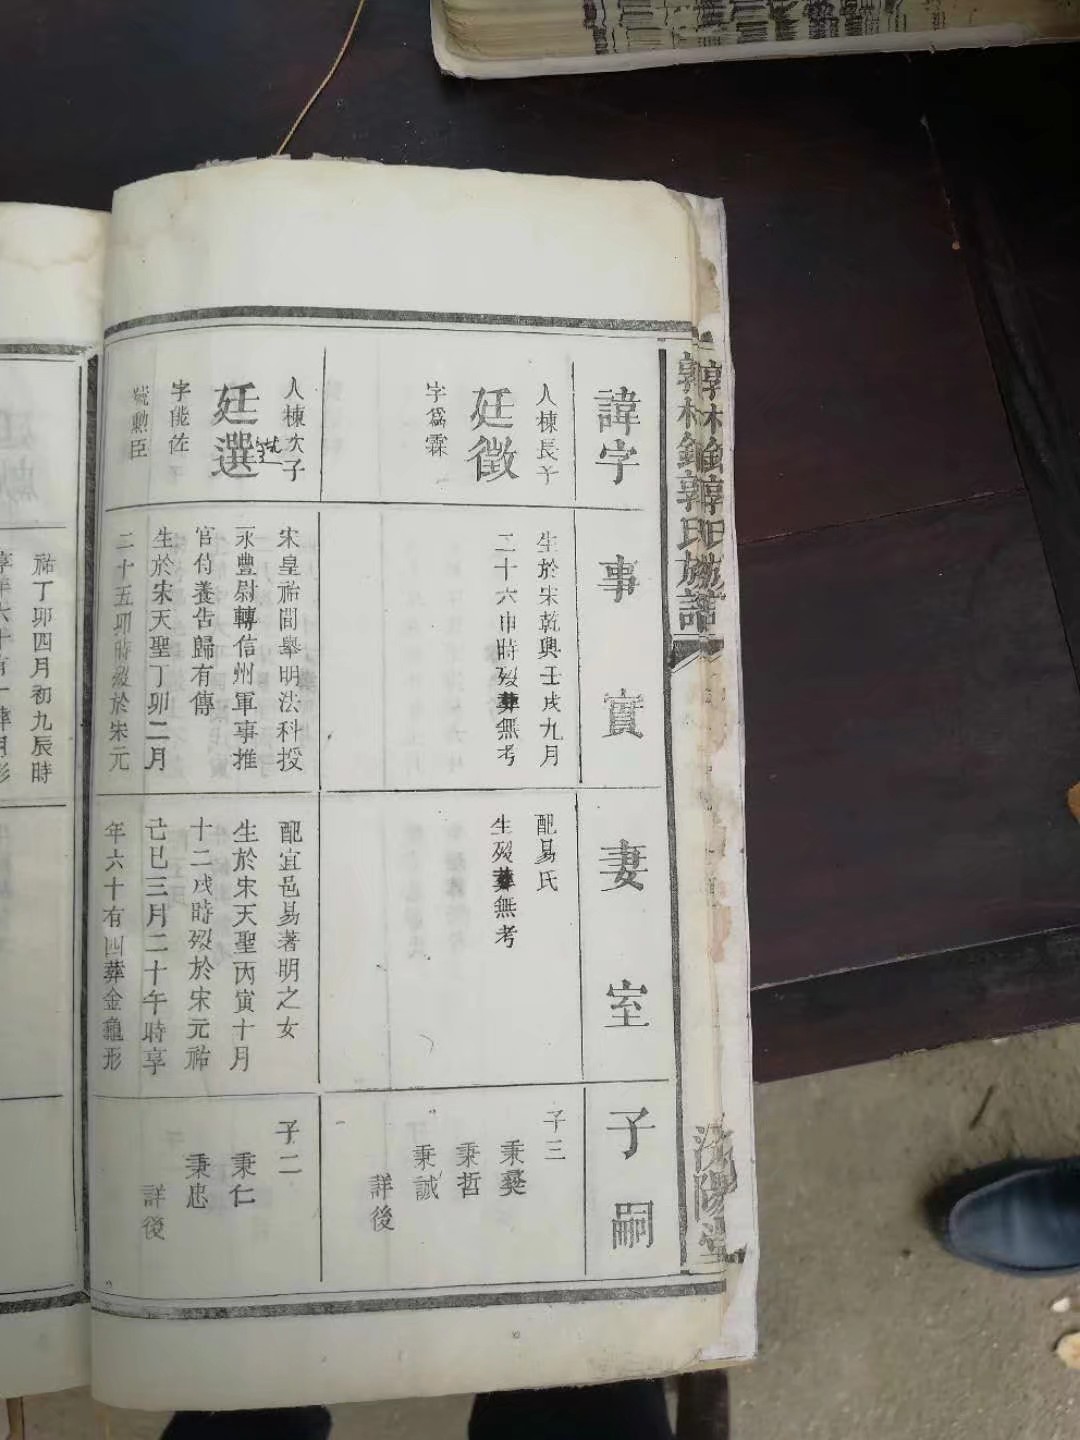 郭氏族譜
諱字
事實
妻室
子嗣
人棟長子
廷徵
字爲霖
生於宋乾興壬戌九月
二十六申時歿葬無考
配易氏
生歿葬無考
子三
秉彝
秉哲
秉誠
詳後
人棟次子
廷選
字能佐
號勲臣
宋皇祐間舉明法科授
永豐尉轉信州軍事推
官侍養告歸有傳
生於宋天聖丁卯二月
二十五卯時歿於宋元
配宜邑易著明之女
生於宋天聖丙寅十月
十二戌時歿於宋元祐
己巳三月二十午時享
年六十有四葬金龜形
子二
秉仁
秉忠
詳後
祐丁卯四月初九辰時